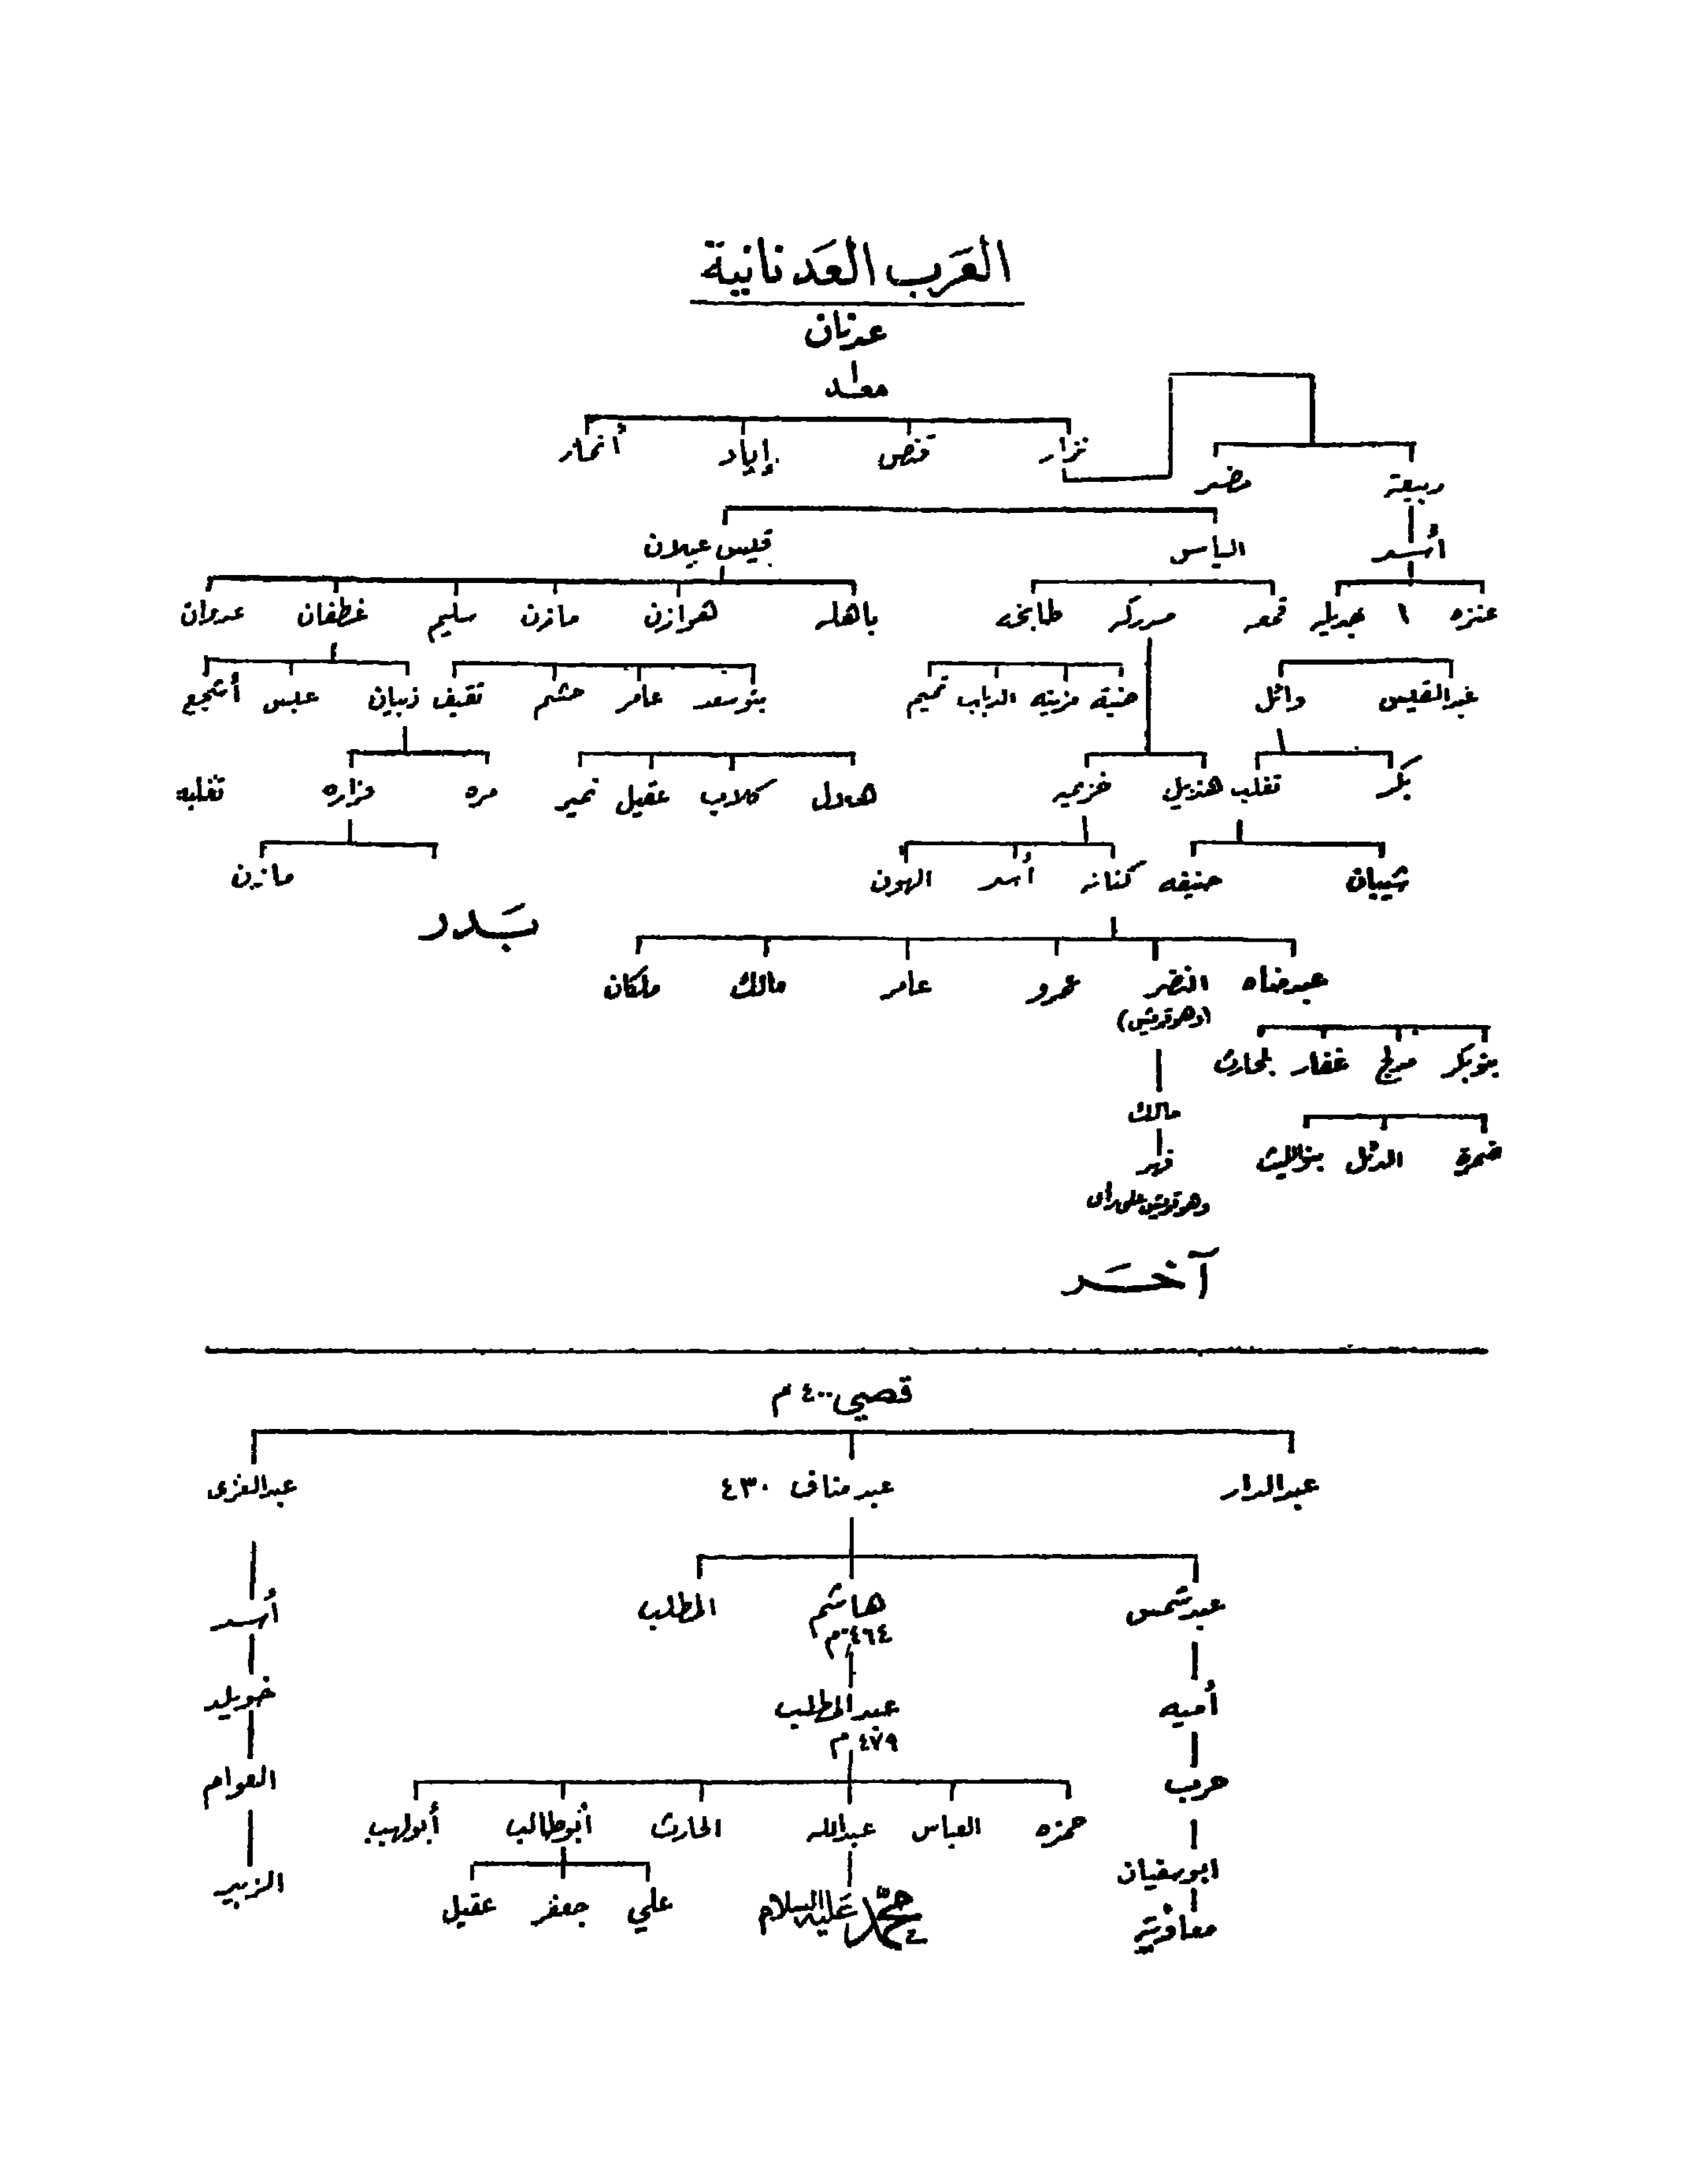 العَرب العَدنانية
عدنان
معد
نزار قنص إياد أنمار
ربيعة مضر
أسد الياس قيس عيلان
عنزه ١ جديله قمعه مدركه طابخه باهله هوازن مازن سليم غطفان عدوان
عبدالقيس وائل ضبة مزينه الرباب تميم بنوسعد عامر جشم ثقيف ذبيان عبس أشجع
بكر تغلب هذيل خزيمه هلال كلاب عقيل نمير مره فزاره ثعلبه
شيبان حنيفه كنانه أسد الهون مازن
بَدر
عبدمناه النضر عمرو عامر مالك ملكان
(وهو قريش)
بنوبكر مدلج غفار بلحارث
مالك
ضمرة الدئل بنوالليث
فهر
وهو قريش على راى
آخَر
قصيي ٤٠٠ م
عبدالدار عبدمناف ٤٣٠ عبدالعزى
عبدشمس هاشم المطلب أسد
٤٦٤ م
أميه عبدالمطلب خويلد
٤٧٩ م
حرب العوام
حمزه العباس عبدالله الحارث أبوطالب أبولهب
ابوسفيان الزبير
معاوية محمّد عَليه السلام علي جعفر عقيل